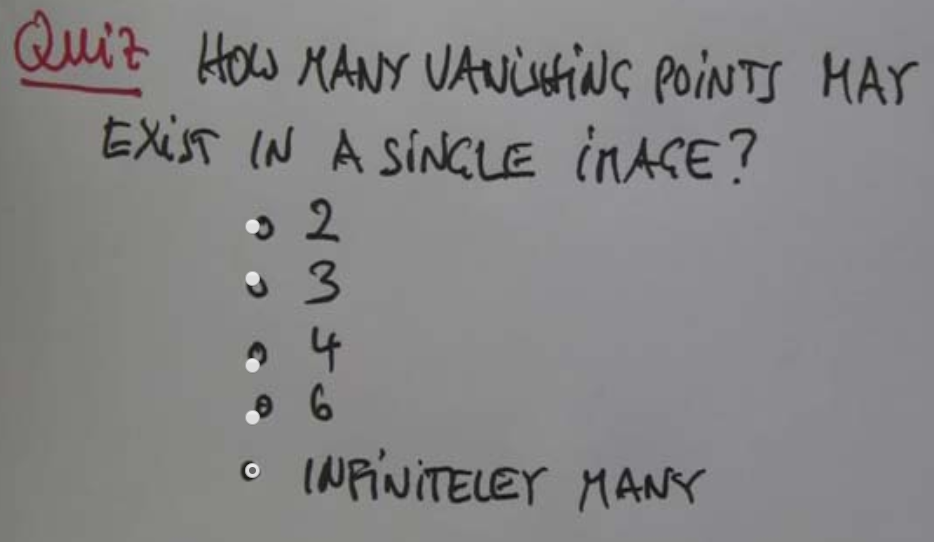 Quiz HOW MANY VANISHING POINTS MAY
EXIST IN A SINGLE IMAGE?
2
3
4
6
INFINITELEY MANY